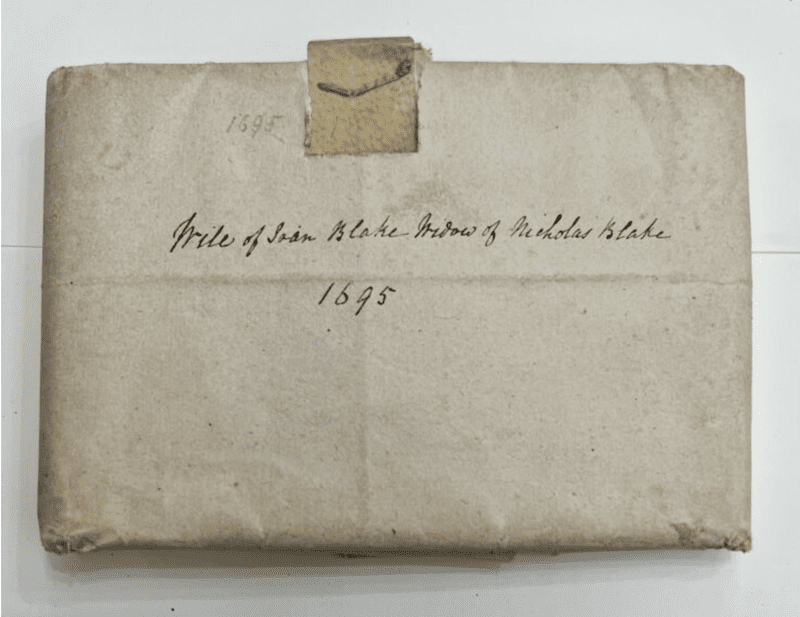 1695
Wile of Joan Blake Widow of Nicholas Blake
1695